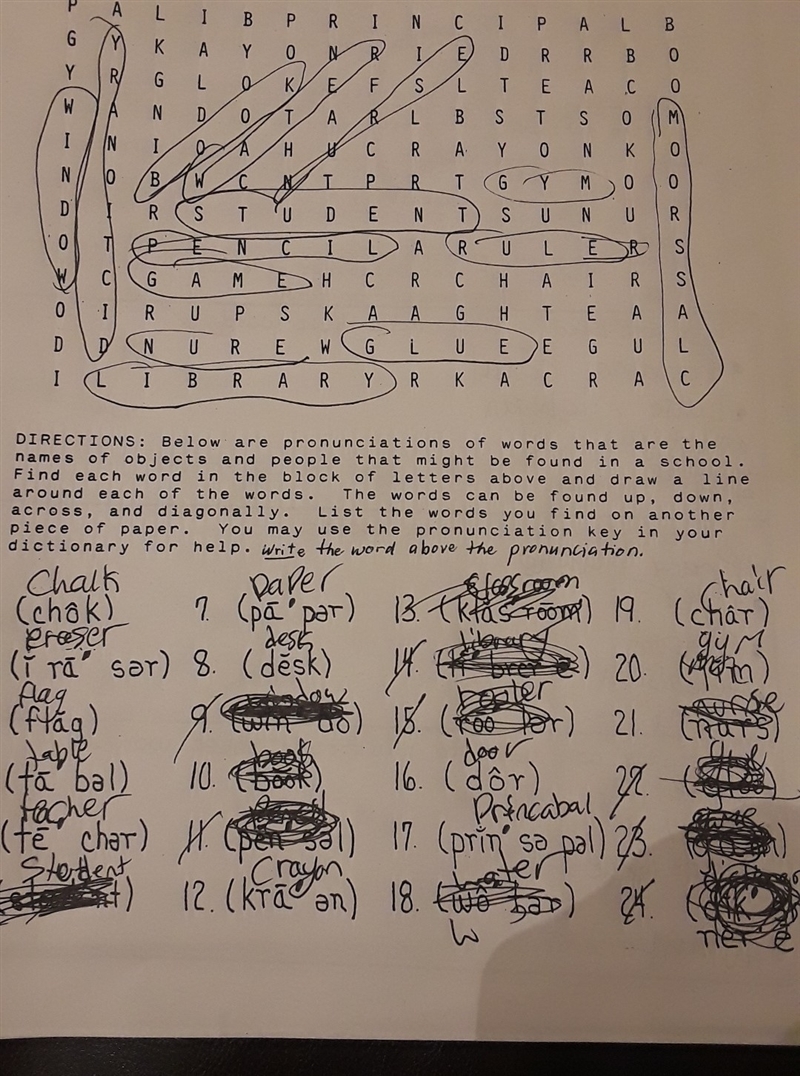 P A L I B P R I N C I P A L B
G Y K A Y O N R I E D R R B O
Y R G L O K E F S L T E A C O
W A N D O T A R L B S T S O M
I N I O A H U C R A Y O N K O
N O B W C N T P R T G Y M O O
D I R S T U D E N T S U N U R
O T P E N C I L A R U L E R S
W C G A M E H C R C H A I R S
O I R U P S K A A G H T E A A
D D N U R E W G L U E E G U L
I L I B R A R Y R K A C R A C
DIRECTIONS: Below are pronunciations of words that are the
names of objects and people that might be found in a school.
Find each word in the block of letters above and draw a line
around each of the words. The words can be found up, down,
across, and diagonally. List the words you find on another
piece of paper. You may use the pronunciation key in your
dictionary for help. Write the word above the pronunciation.
Chalk paper classroom chair
(chôk) 7. (pā′ pər) 13. (klas′ rōōm) 19. (châr)
eraser desk library gym
(ĭ rā′ sər) 8. (dĕsk) 14. 20.
flag window
(flăg) 9. (wĭn′ dō) 15. (rōō′ lər) 21. (nûrs)
table book door
(tā′ bəl) 10. (bo͝ok) 16. (dôr) 22.
Princabal
(tē′ chər) 11. (pĕn′ səl) 17. (prĭn′ sə pəl) 23.
Crayon
12. (krā′ ən) 18. 24.
W